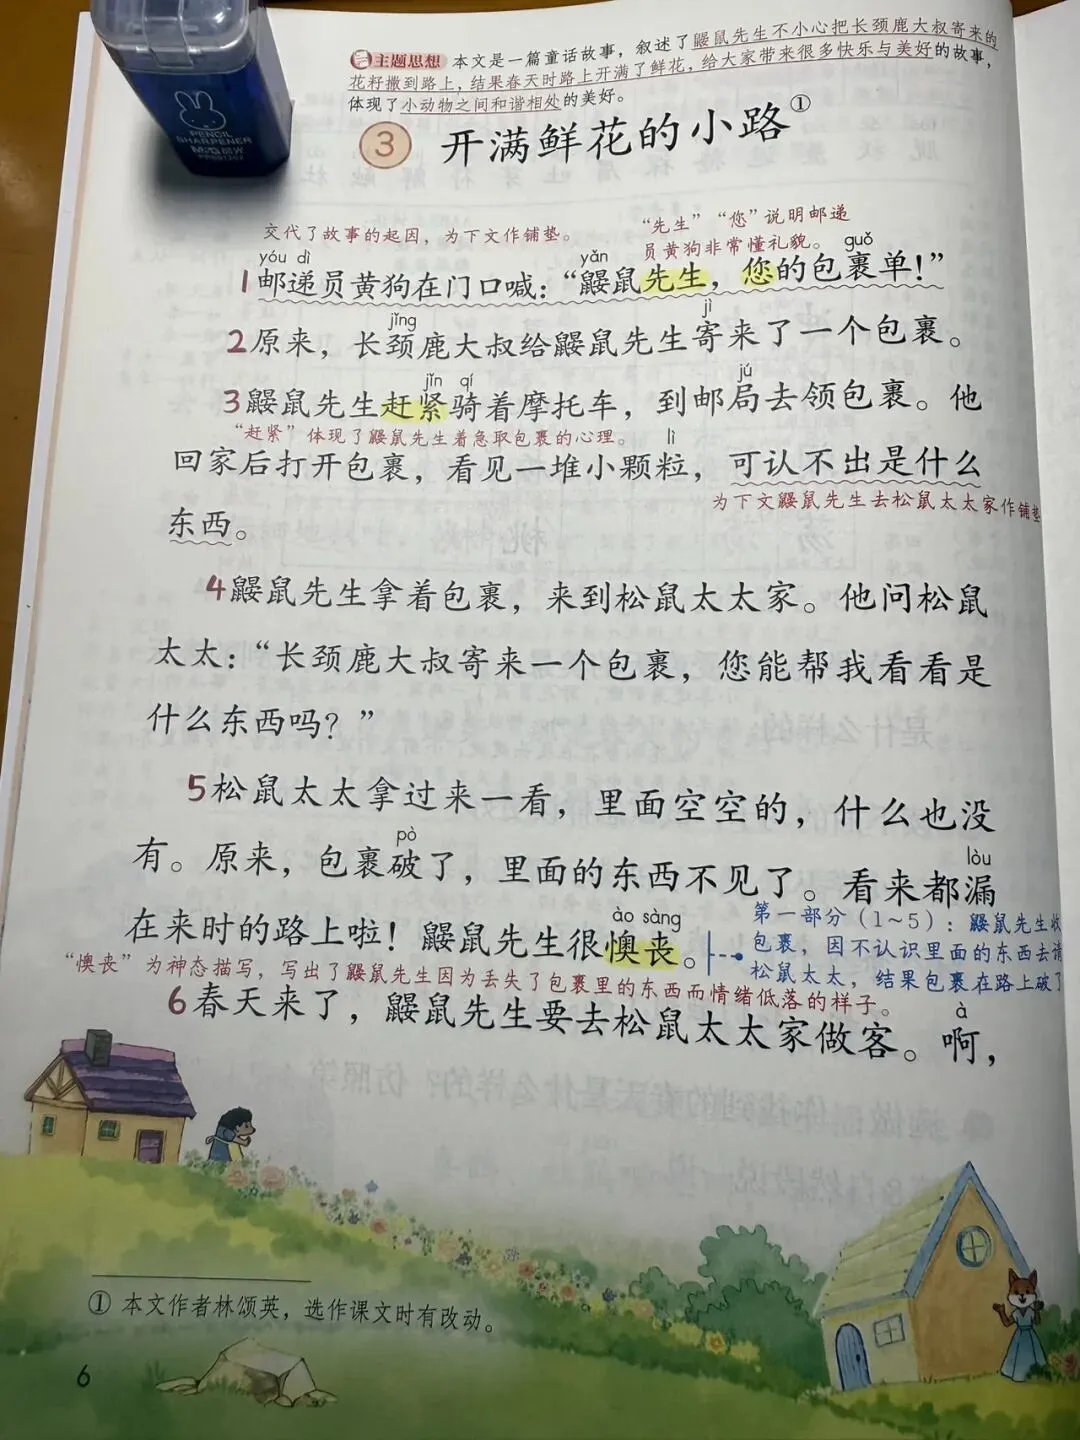 PENCIL
SHARPENER
M&G 晨光
主题思想 本文是一篇童话故事，叙述了鼹鼠先生不小心把长颈鹿大叔寄来的
花籽撒到路上，结果春天时路上开满了鲜花，给大家带来很多快乐与美好的故事，
体现了小动物之间和谐相处的美好。
3 开满鲜花的小路①
交代了故事的起因，为下文作铺垫。
“先生”“您”说明邮递
员黄狗非常懂礼貌。
yóu dì yǎn guǒ
1邮递员黄狗在门口喊：“鼹鼠先生，您的包裹单！”
jǐng jì
2原来，长颈鹿大叔给鼹鼠先生寄来了一个包裹。
jǐn qí jú
3鼹鼠先生赶紧骑着摩托车，到邮局去领包裹。他
“赶紧”体现了鼹鼠先生着急取包裹的心理。
lì
回家后打开包裹，看见一堆小颗粒，可认不出是什么
为下文鼹鼠先生去松鼠太太家作铺垫
东西。
4鼹鼠先生拿着包裹，来到松鼠太太家。他问松鼠
太太：“长颈鹿大叔寄来一个包裹，您能帮我看看是
什么东西吗？”
5松鼠太太拿过来一看，里面空空的，什么也没
pò lòu
有。原来，包裹破了，里面的东西不见了。看来都漏
ào sàng
在来时的路上啦！鼹鼠先生很懊丧。
第一部分（1～5）：鼹鼠先生收
包裹，因不认识里面的东西去请
松鼠太太，结果包裹在路上破了
“懊丧”为神态描写，写出了鼹鼠先生因为丢失了包裹里的东西而情绪低落的样子。
à
6春天来了，鼹鼠先生要去松鼠太太家做客。啊，
① 本文作者林颂英，选作课文时有改动。
6